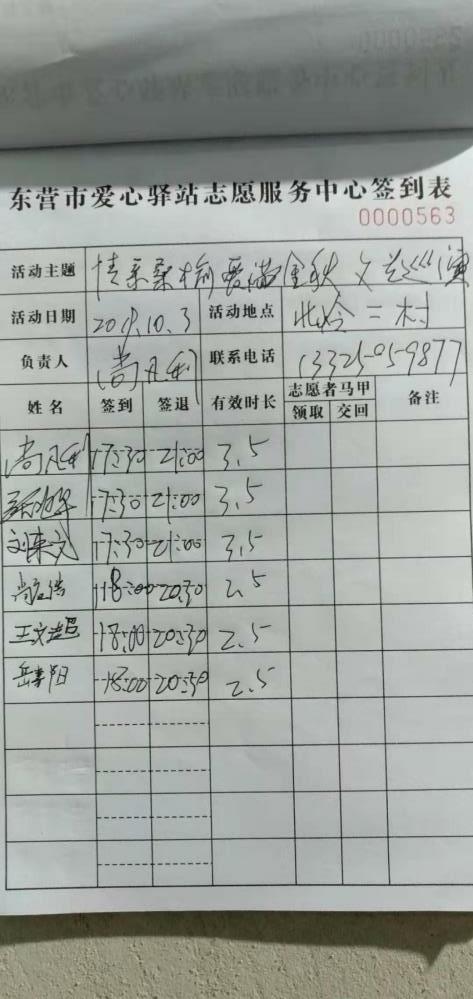 东营市爱心驿站志愿服务中心签到表
0000563
活动主题 情系桑榆 爱满金秋 文艺巡演
活动日期 2019.10.3 活动地点 二村
负责人 尚凡利 联系电话 13325059877
姓名 签到 签退 有效时长 志愿者马甲 备注
领取 交回
尚凡利 17:30 21:00 3.5
17:30 21:00 3.5
刘来文 17:30 21:00 3.5
18:00 20:30 2.5
王文 18:00 20:30 2.5
18:00 20:30 2.5